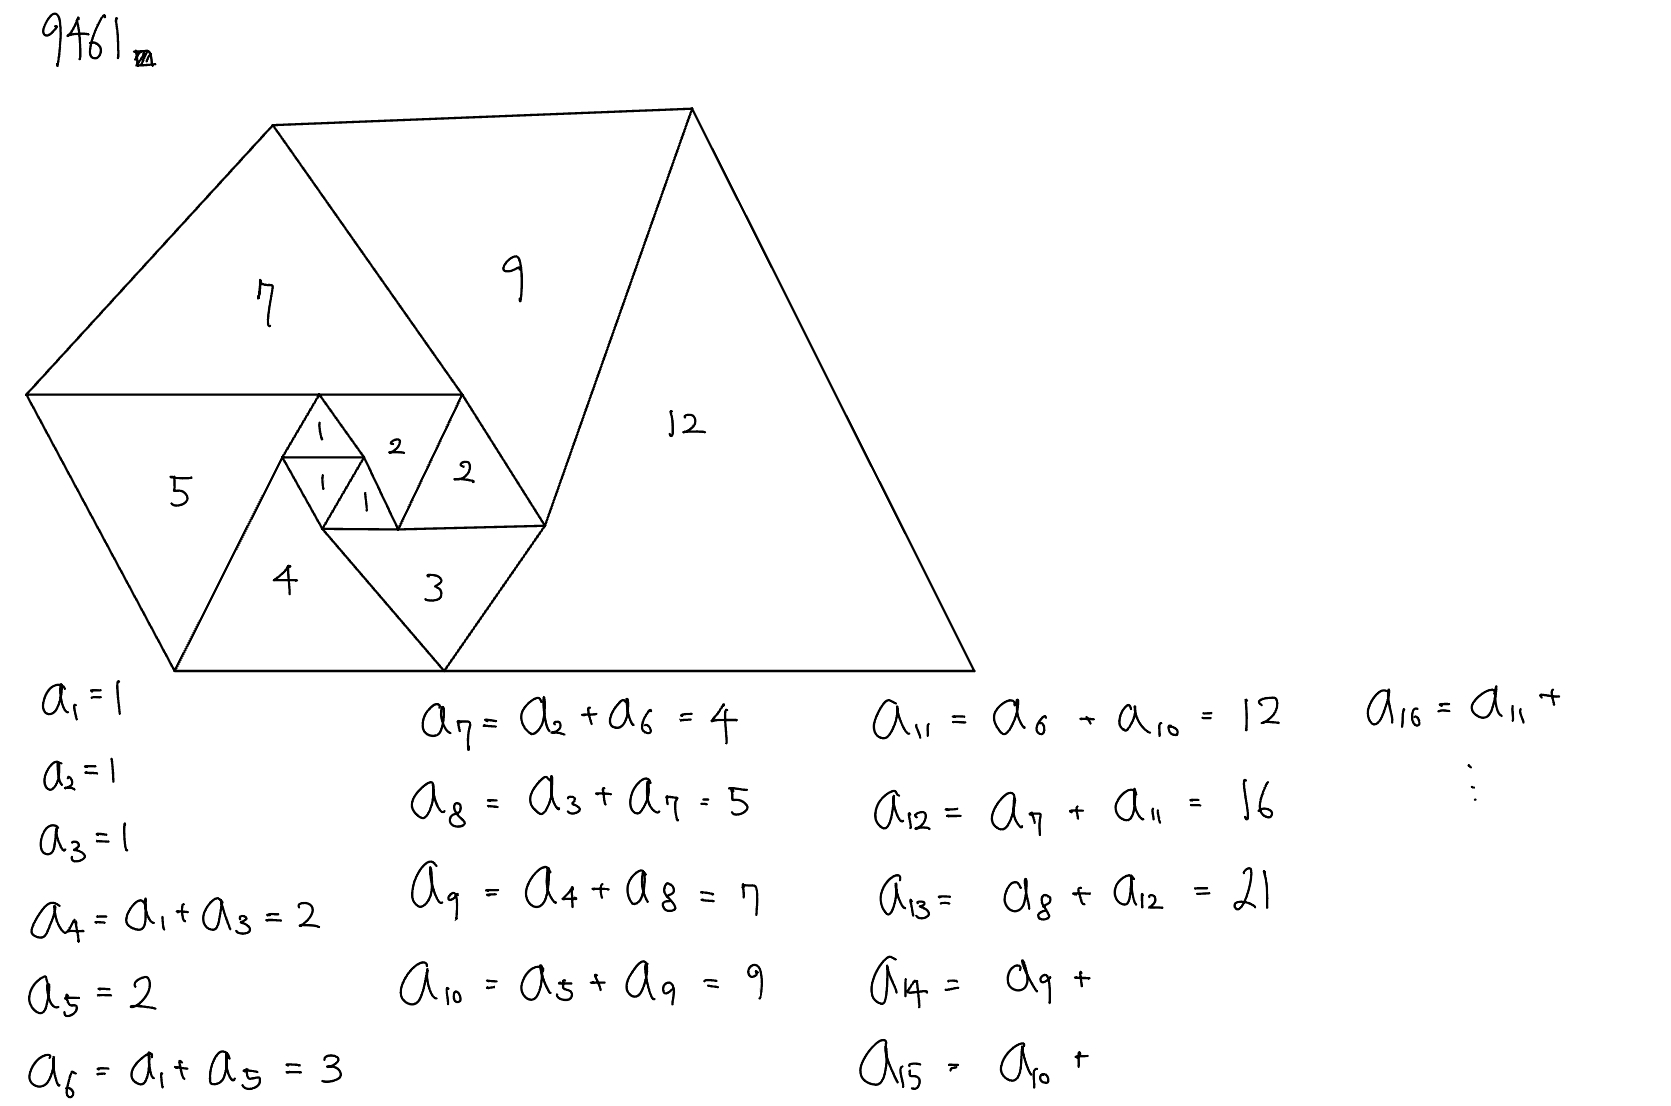 9461
7
9
12
1
2
5
1
1
2
4
3
a₁ = 1
a₂ = 1
a₃ = 1
a₄ = a₁ + a₃ = 2
a₅ = 2
a₆ = a₁ + a₅ = 3
a₇ = a₂ + a₆ = 4
a₈ = a₃ + a₇ = 5
a₉ = a₄ + a₈ = 7
a₁₀ = a₅ + a₉ = 9
a₁₁ = a₆ + a₁₀ = 12
a₁₂ = a₇ + a₁₁ = 16
a₁₃ = a₈ + a₁₂ = 21
a₁₄ = a₉ +
a₁₅ = a₁₀ +
a₁₆ = a₁₁ +
⋮